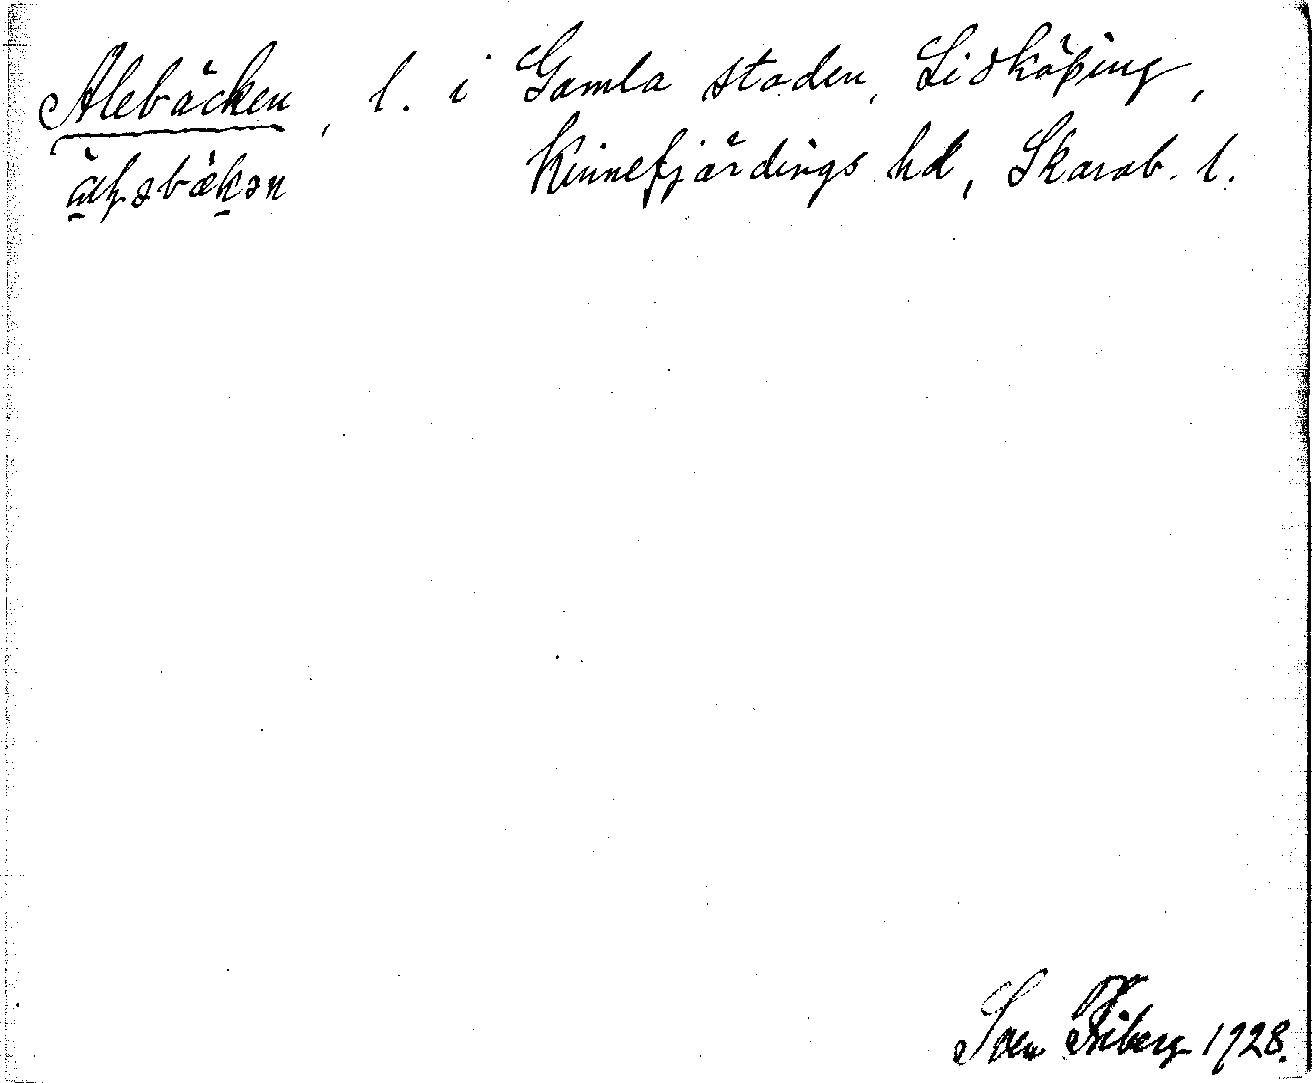 Alebäcken, l. i Gamla staden, Lidköping,
Kinnefjärdings hd, Skarab. l.
Sven Friberg 1928.